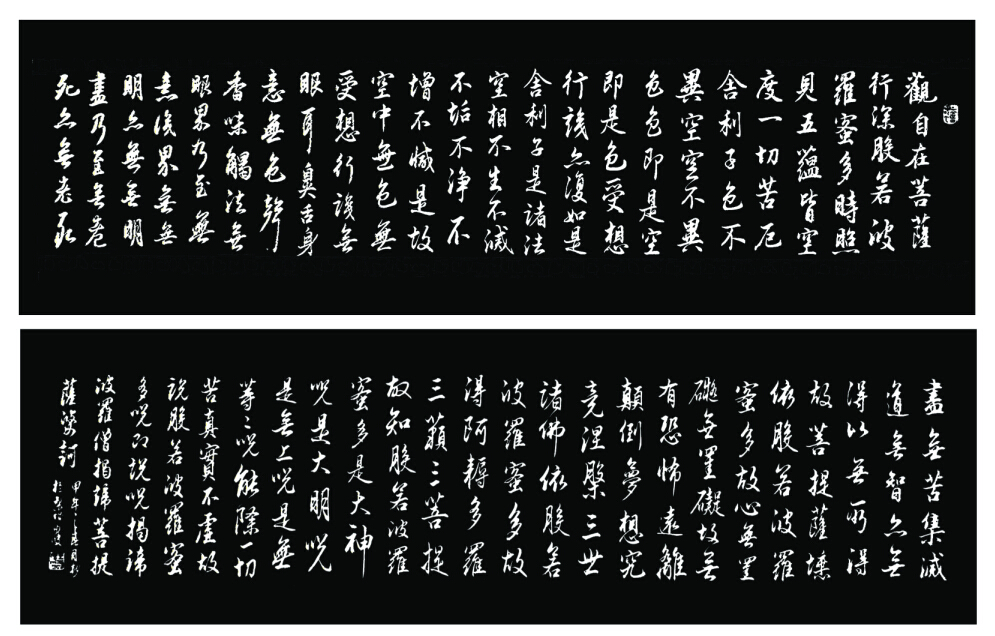 觀自在菩薩
行深般若波
羅蜜多時照
見五蘊皆空
度一切苦厄
舍利子色不
異空空不異
色色即是空
即是色受想
行識亦復如是
舍利子是諸法
空相不生不滅
不垢不淨不
增不減是故
空中無色無
受想行識無
眼耳鼻舌身
意無色聲
香味觸法無
眼界乃至無
意識界無無
明亦無無明
盡乃至無老
死亦無老死
盡無苦集滅
道無智亦無
得以無所得
故菩提薩埵
依般若波羅
蜜多故心無罣
礙無罣礙故無
有恐怖遠離
顛倒夢想究
竟涅槃三世
諸佛依般若
波羅蜜多故
得阿耨多羅
三藐三菩提
故知般若波羅
蜜多是大神
呪是大明呪
是無上呪是無
等々呪能除一切
苦真實不虛故
說般若波羅蜜
多呪即說呪揭諦
波羅僧揭諦菩提
薩婆訶